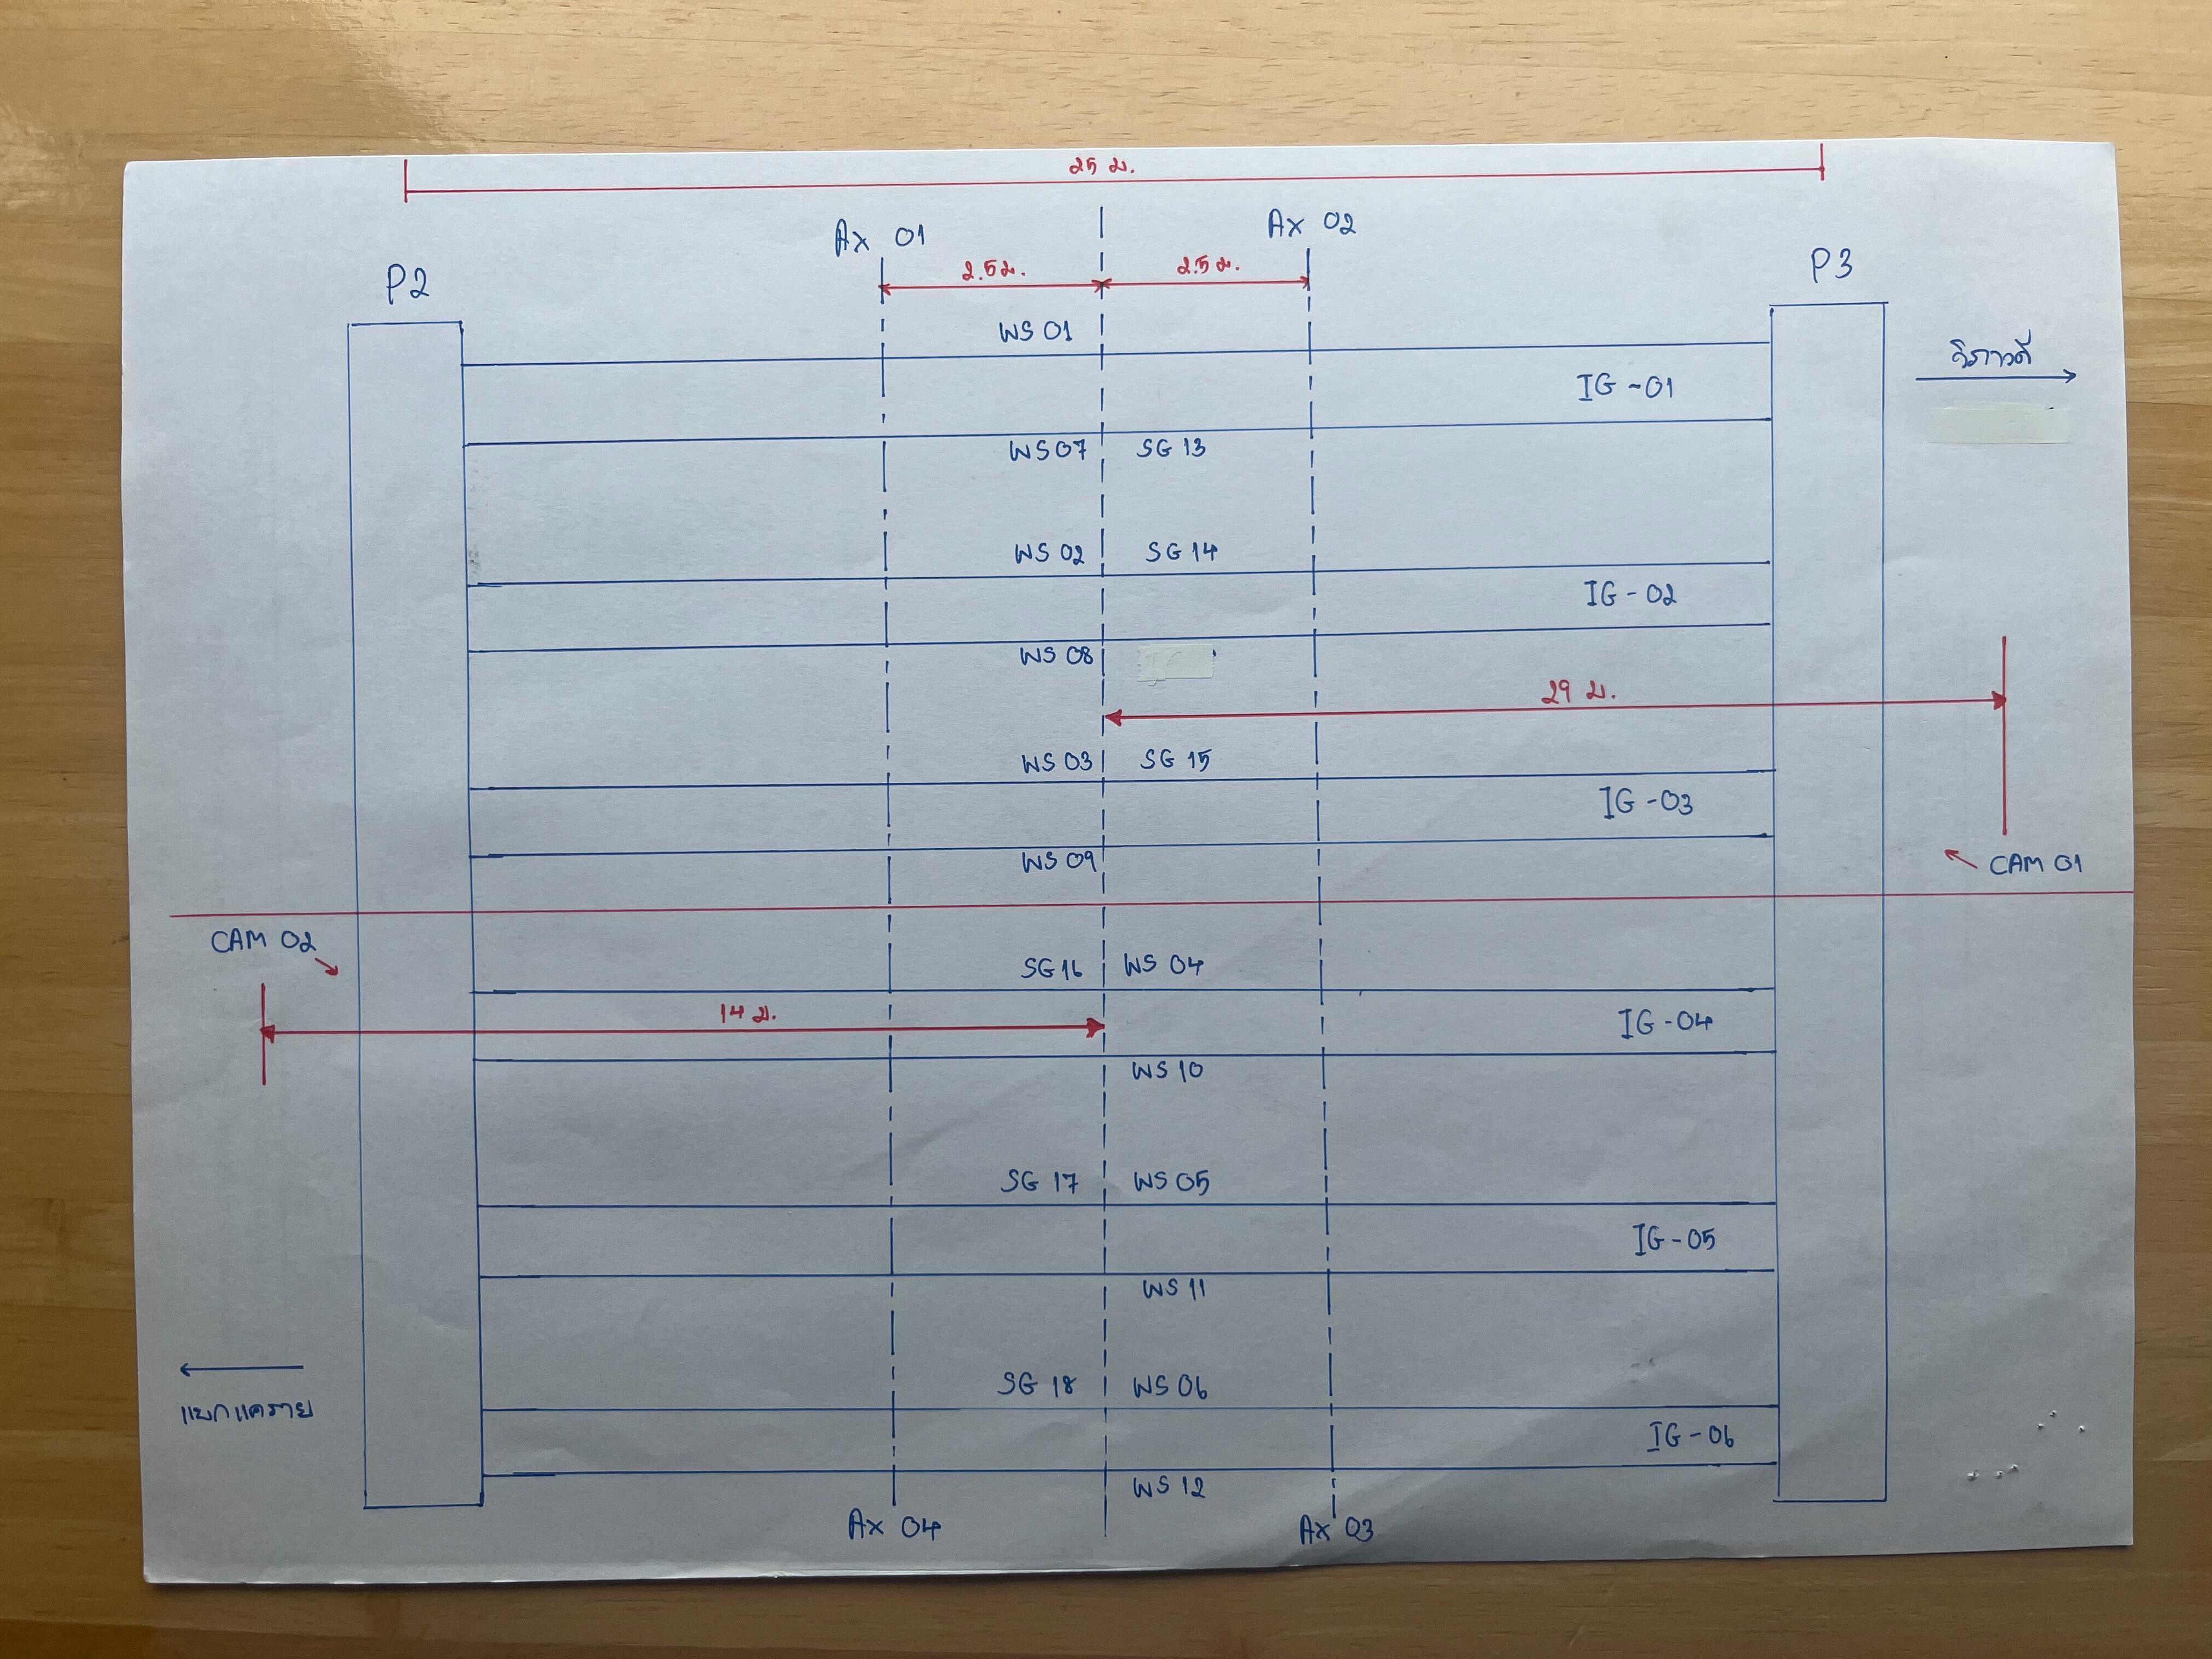 25 ม.
Ax 01
Ax 02
2.5 ม.
2.5 ม.
P2
P3
WS 01
วิภาวดี
IG-01
WS 07 SG 13
WS 02 SG 14
IG-02
WS 08
29 ม.
WS 03 SG 15
IG-03
WS 09
CAM 01
CAM 02
SG 16 WS 04
14 ม.
IG-04
WS 10
SG 17 WS 05
IG-05
WS 11
SG 18 WS 06
แยกแคราย
IG-06
WS 12
Ax 04
Ax 03